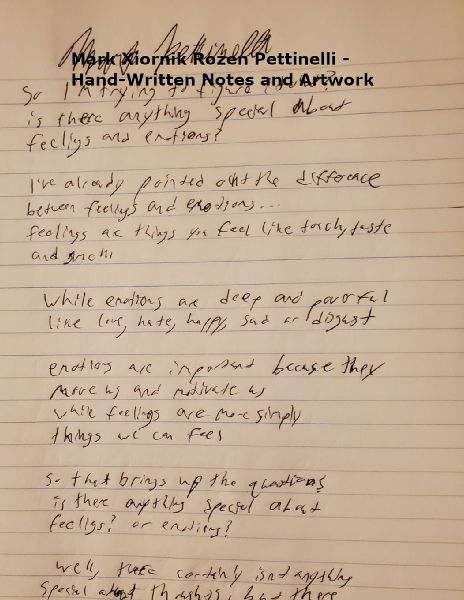 Mark Xiornik Rozen Pettinelli -
Hand-Written Notes and Artwork
So I'm trying to figure
is there anything special about
feeligs and emotions?
I've already pointed out the difference
between feeligs and emotions...
feelings are things you feel like touch, taste
and smell
while emotions are deep and powerful
like love, hate, happy, sad or disgust
emotions are important because they
move us and motivate us
while feelings are more simply
things we can feel
So that brings up the questions
is there anything special about
feeligs? or emotions?
Well, there certainly isnt anything
special about thoughts, but there